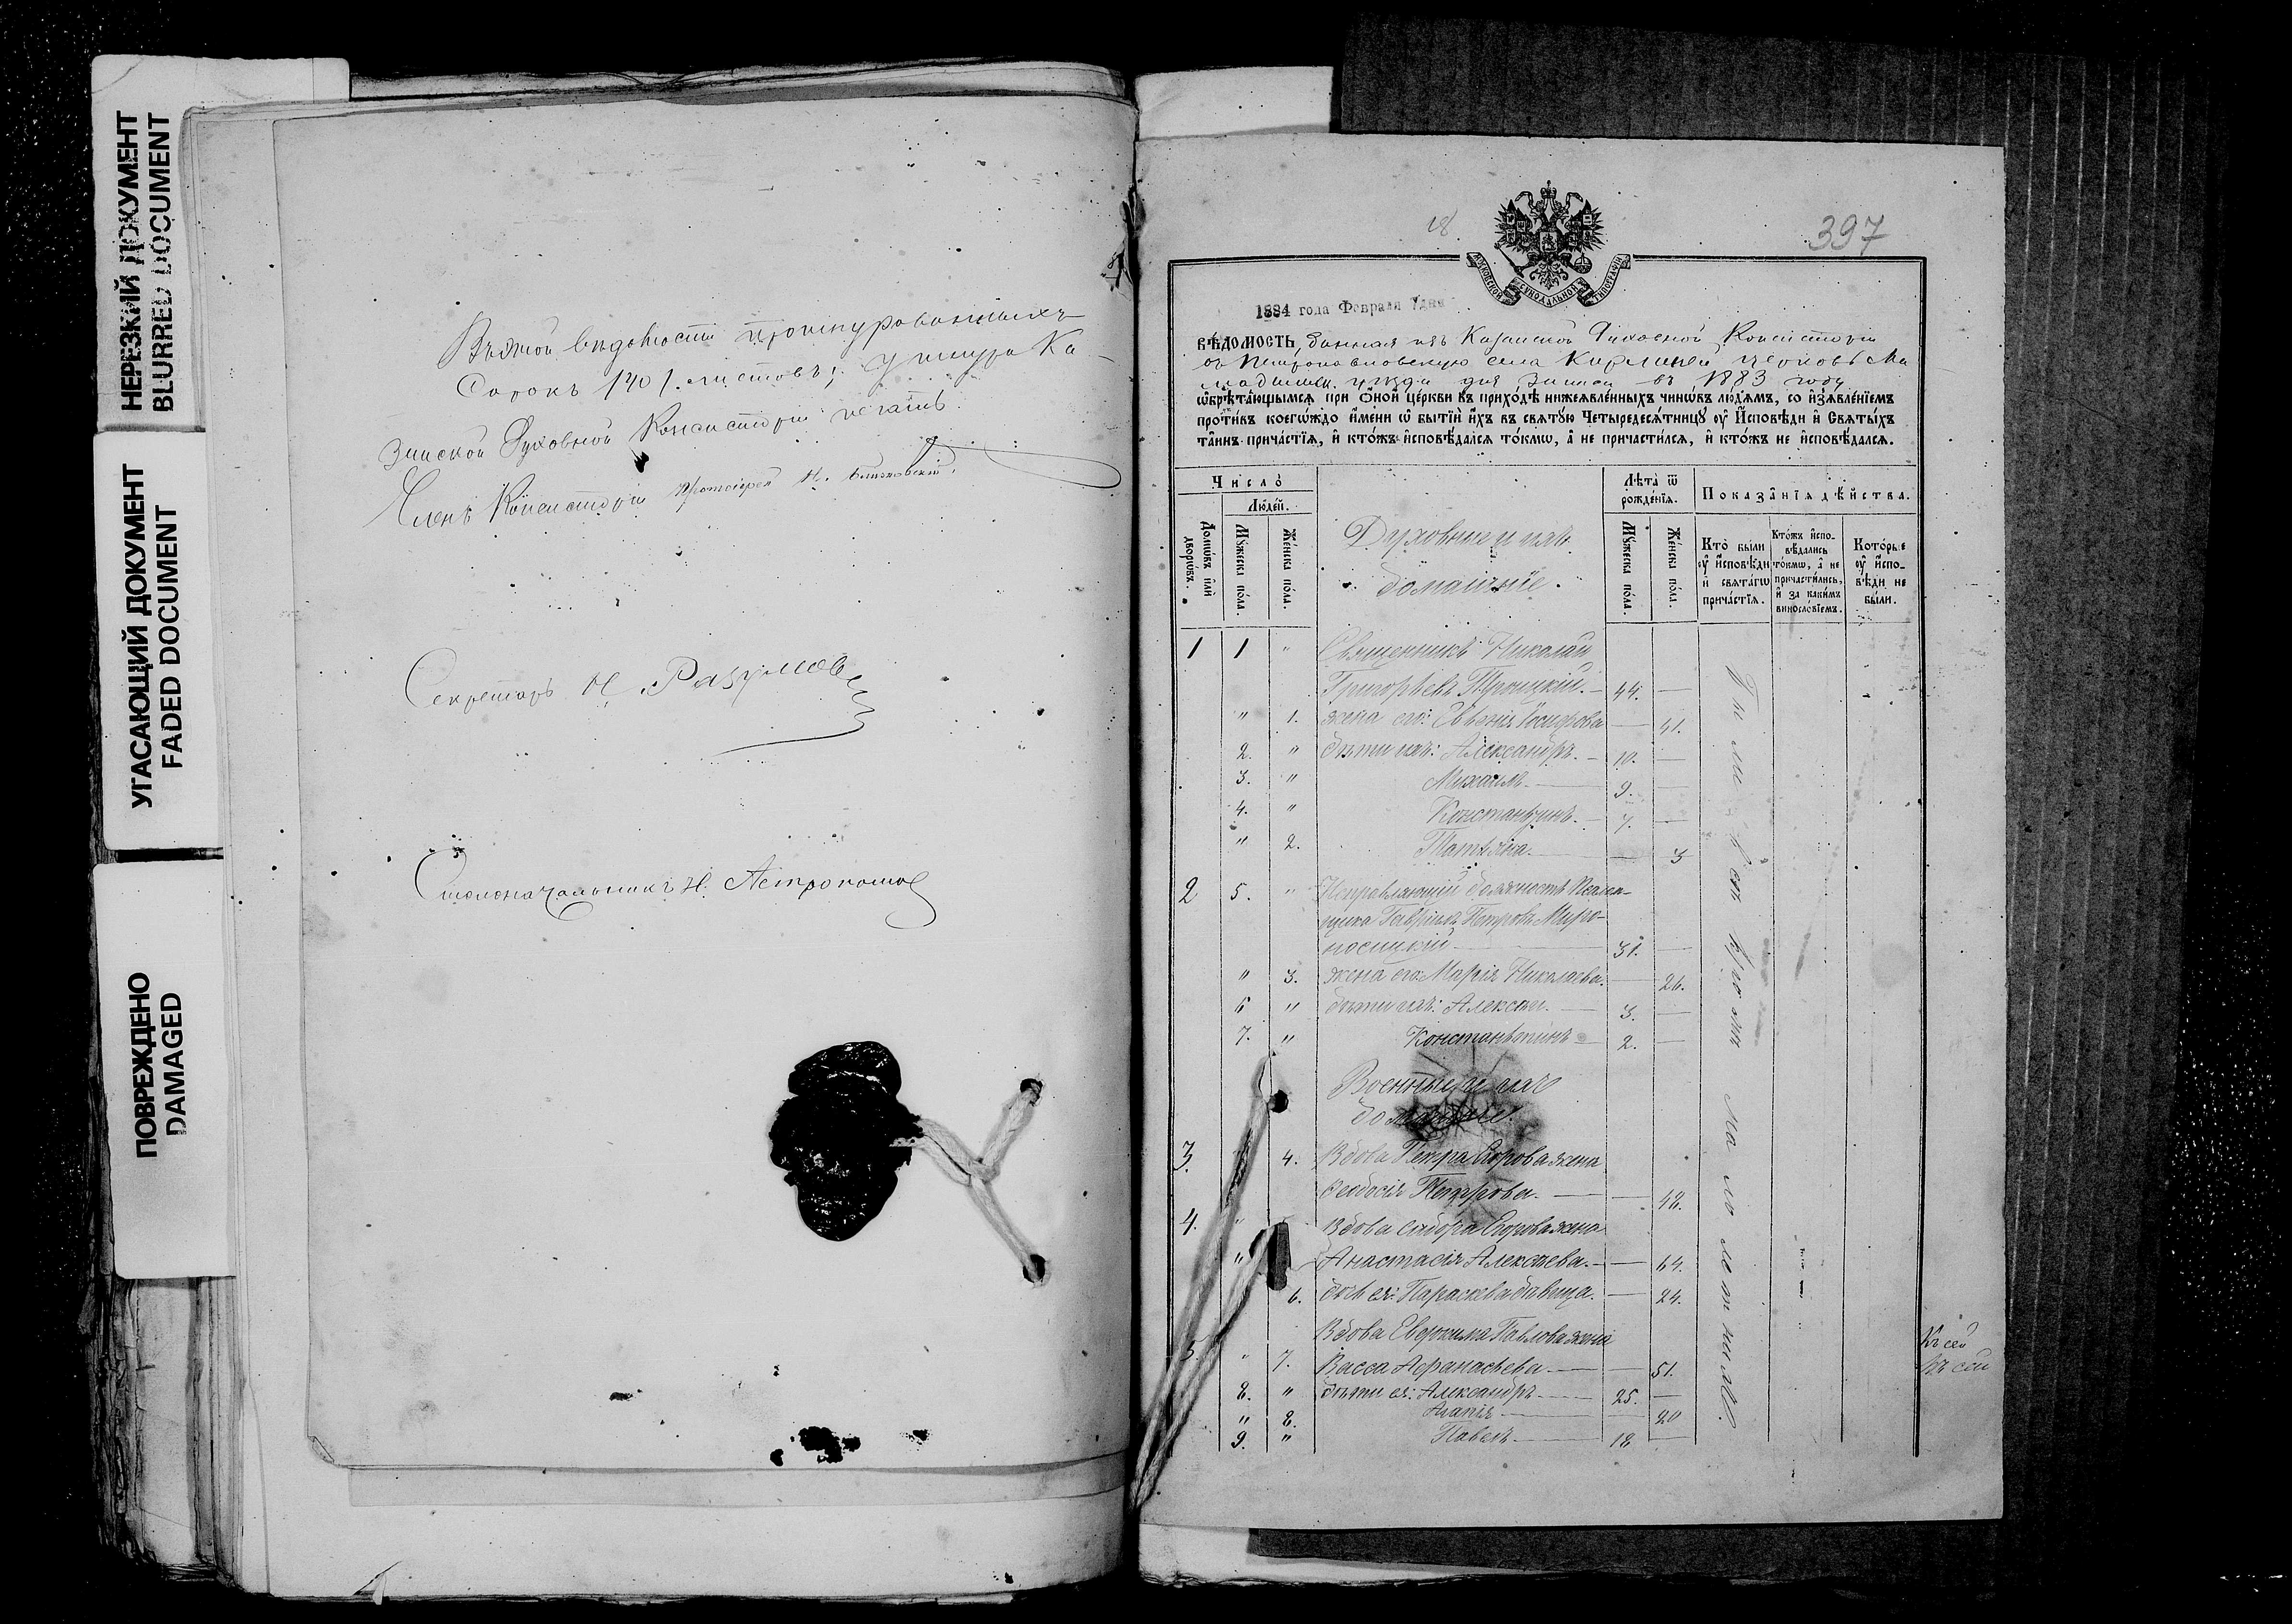 НЕРЕЗКИЙ ДОКУМЕНТ
BLURRED DOCUMENT
УГАСАЮЩИЙ ДОКУМЕНТ
FADED DOCUMENT
ПОВРЕЖДЕНО
DAMAGED
Въ этой вѣдомости прошнурованныхъ
Сорокъ /40/. листовъ; у шнура Ка-
занской Духовной Консисторіи печать.
Членъ Консисторіи Протоіерей
Секретарь Н. Разумовъ
Столоначальникъ Н. Астрономовъ
18.
397
МОСКОВСКОЙ СѴНОДАЛЬНОЙ ТИПОГРАФІИ
1884 года Февраля 7 дня
ВѢДОМОСТЬ, данная изъ Казанской Духовной Консисторіи
въ Петропавловскую села церковь Ма
мадышск. уѣзда для записи въ 1883 году
ѡбрѣта́ющымся при ѻ҆́ной це́ркви въ прихо́дѣ нижеѧвле́нныхъ чинѡ́въ лю́дѧмъ, со и҆зѧвле́нїемъ
про́тивъ коегѡ́ждо и҆́мени ѡ҆ бытїѝ и҆́хъ въ свѧту́ю Четыредесѧ́тницу ᲂу҆ И҆́сповѣди и҆ Свѧты́хъ
та̑инъ прича́стїѧ, и҆ кто́жъ и҆сповѣ́далсѧ то́кмѡ, а҆ не причасти́лсѧ, и҆ кто́жъ не и҆сповѣ́далсѧ.
Число̀
Люде́й.
Домѡ́въ и҆лѝ дворѡ́въ.
Мꙋ́жеска по́ла.
Же́нска по́ла.
Духовные и ихъ
домашніе.
Лѣ́та ѿ рожде́нїѧ.
Мꙋ́жеска по́ла.
Же́нска по́ла.
Показа̑нїѧ дѣ́йства.
Кто̀ бы́ли ᲂу҆ и҆́сповѣди и҆ свѧта́гѡ прича́стїѧ.
Кто́жъ и҆спо-вѣ́дались то́кмѡ, а҆ не причасти́лись, и҆ за каки́мъ винослѡ́вїемъ.
Кото́рые ᲂу҆ и҆́спо-вѣди не бы́ли.
1 1 " Священникъ Николай
Григорьевъ Троицкій. — 44. —
" 1. жена его: Евѳенія — 41.
2. " дѣти ихъ: Александръ. — 10. —
3. " Михаилъ — 9. —
4. " Константинъ. — 7. —
" 2. Татьяна. — 3
2 5. " Исправляющій должность Псалом-
щика Гавріилъ Петровъ Миро-
носицкій — 31. —
" 3. жена его: Марія Николаева. — 26.
6 " дѣти ихъ: Алексѣй. — 3. —
7. " Константинъ — 2. —
Военные и ихъ
домашніе.
3. 4. Вдова Петра Егорова жена
Ѳеодосія Петрова. — 48.
4. " Вдова Сидора Егорова жена
" Анастасія Алексѣева. — 64.
6. дочь ея: Параскева дѣвица. — 24.
Вдова Евдокима Павлова жена
5. " 7. Васса Аѳанасьева — 51.
8. " дѣти ея: Александръ — 25. —
" 8. Агапія — 20
9. " Павелъ — 18 —